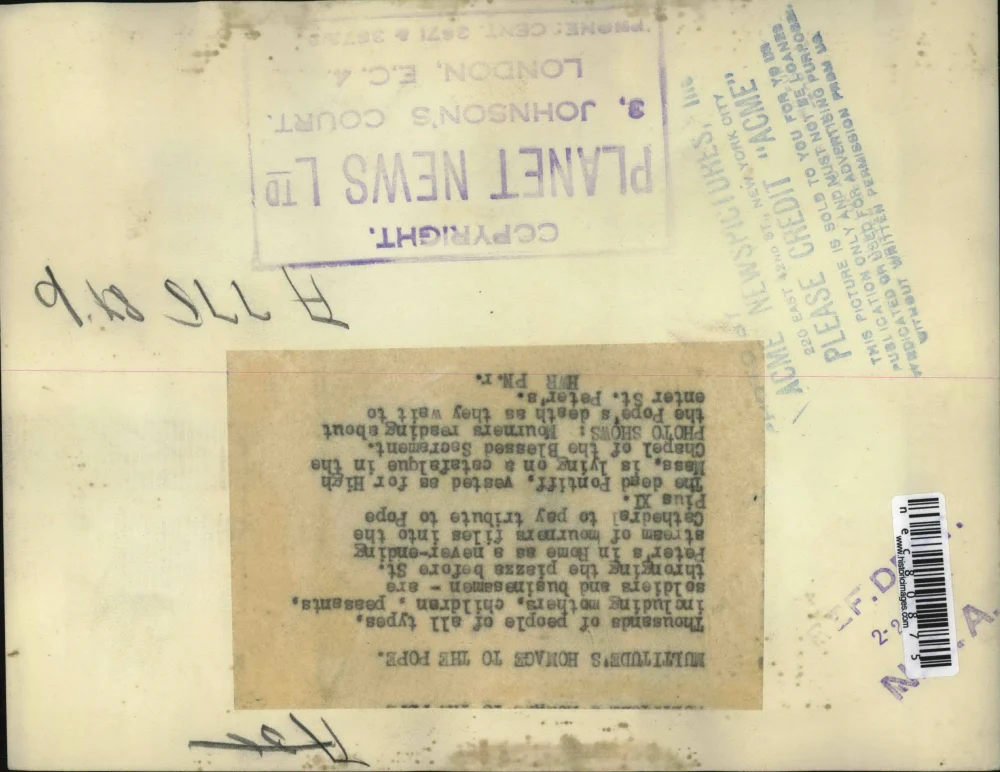 COPYRIGHT.
PLANET NEWS LTD
3, JOHNSON'S COURT.
LONDON, E.C. 4.
PHONE: CENT. 3671 &
ACME NEWSPICTURES, Inc
220 EAST 42ND ST., NEW YORK CITY
PLEASE CREDIT "ACME"
THIS PICTURE IS SOLD TO YOU FOR
PUBLICATION ONLY AND MUST NOT BE LOANED
OR USED FOR ADVERTISING PURPOSES.
WITHOUT WRITTEN PERMISSION FROM US.
MULTITUDE'S HOMAGE TO THE POPE.
Thousands of people of all types,
including mothers, children , peasants,
soldiers and businessmen - are
thronging the piazza before St.
Peter's in Rome as a never-ending
stream of mourners files into the
Cathedral to pay tribute to Pope
Pius XI.
The dead Pontiff, vested as for High
Mass, is lying on a catafalque in the
Chapel of the Blessed Sacrament.
PHOTO SHOWS: Mourners reading about
the Pope's death as they wait to
enter St. Peter's.
HWR PN.r.
www.historicimages.com
n e c 8 0 8 7 5